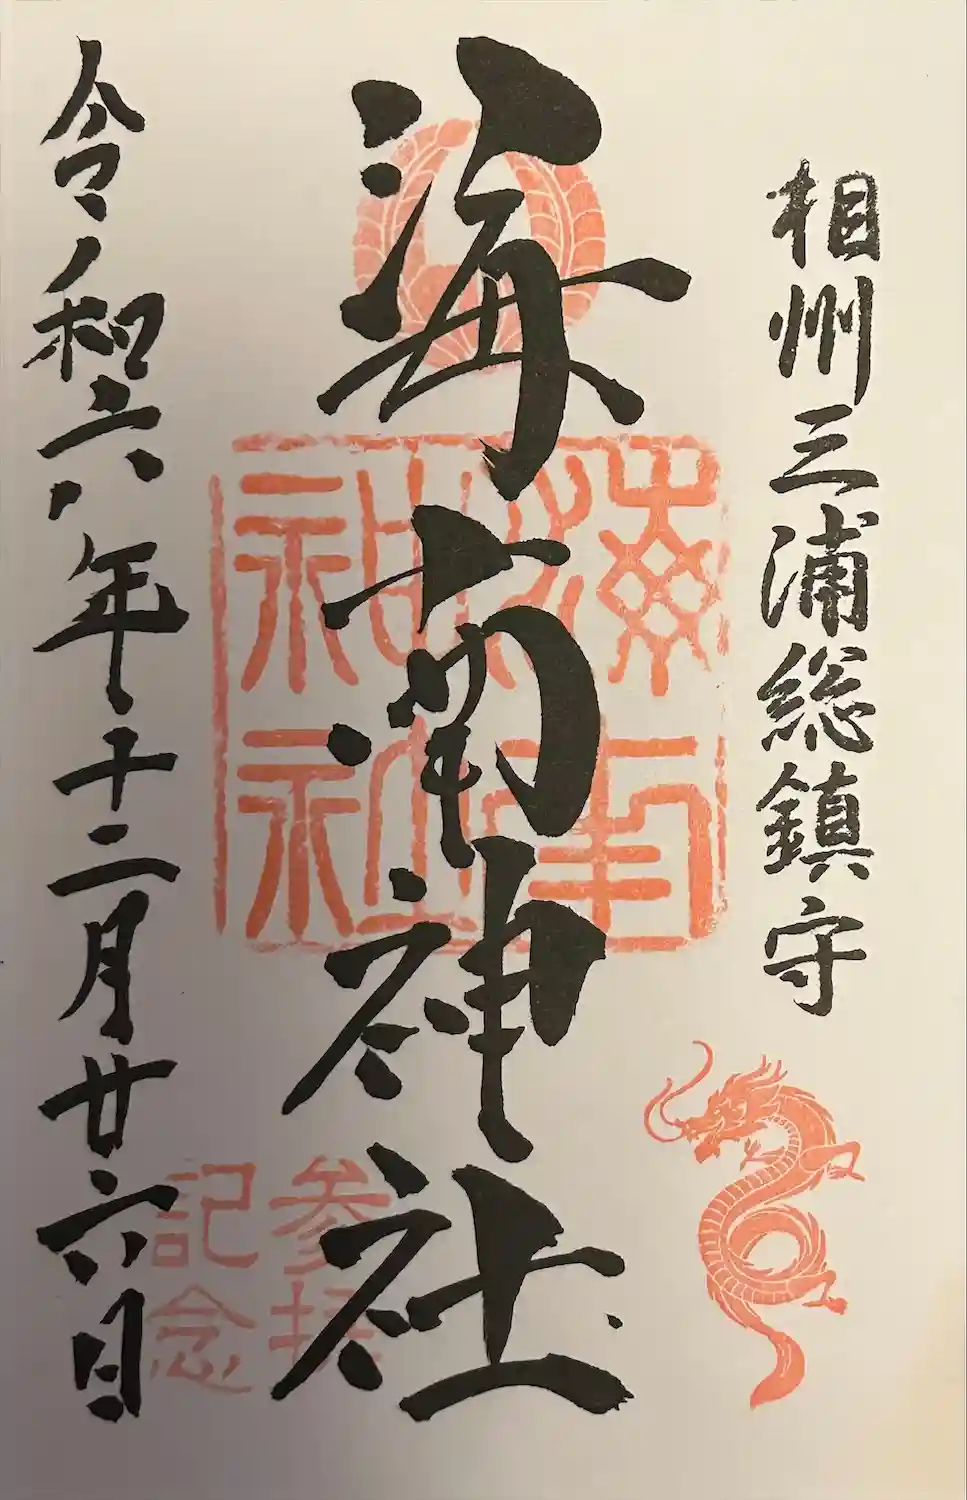 相州三浦総鎮守
海南神社
海南神社
参拝
記念
令和六年十二月廿六日